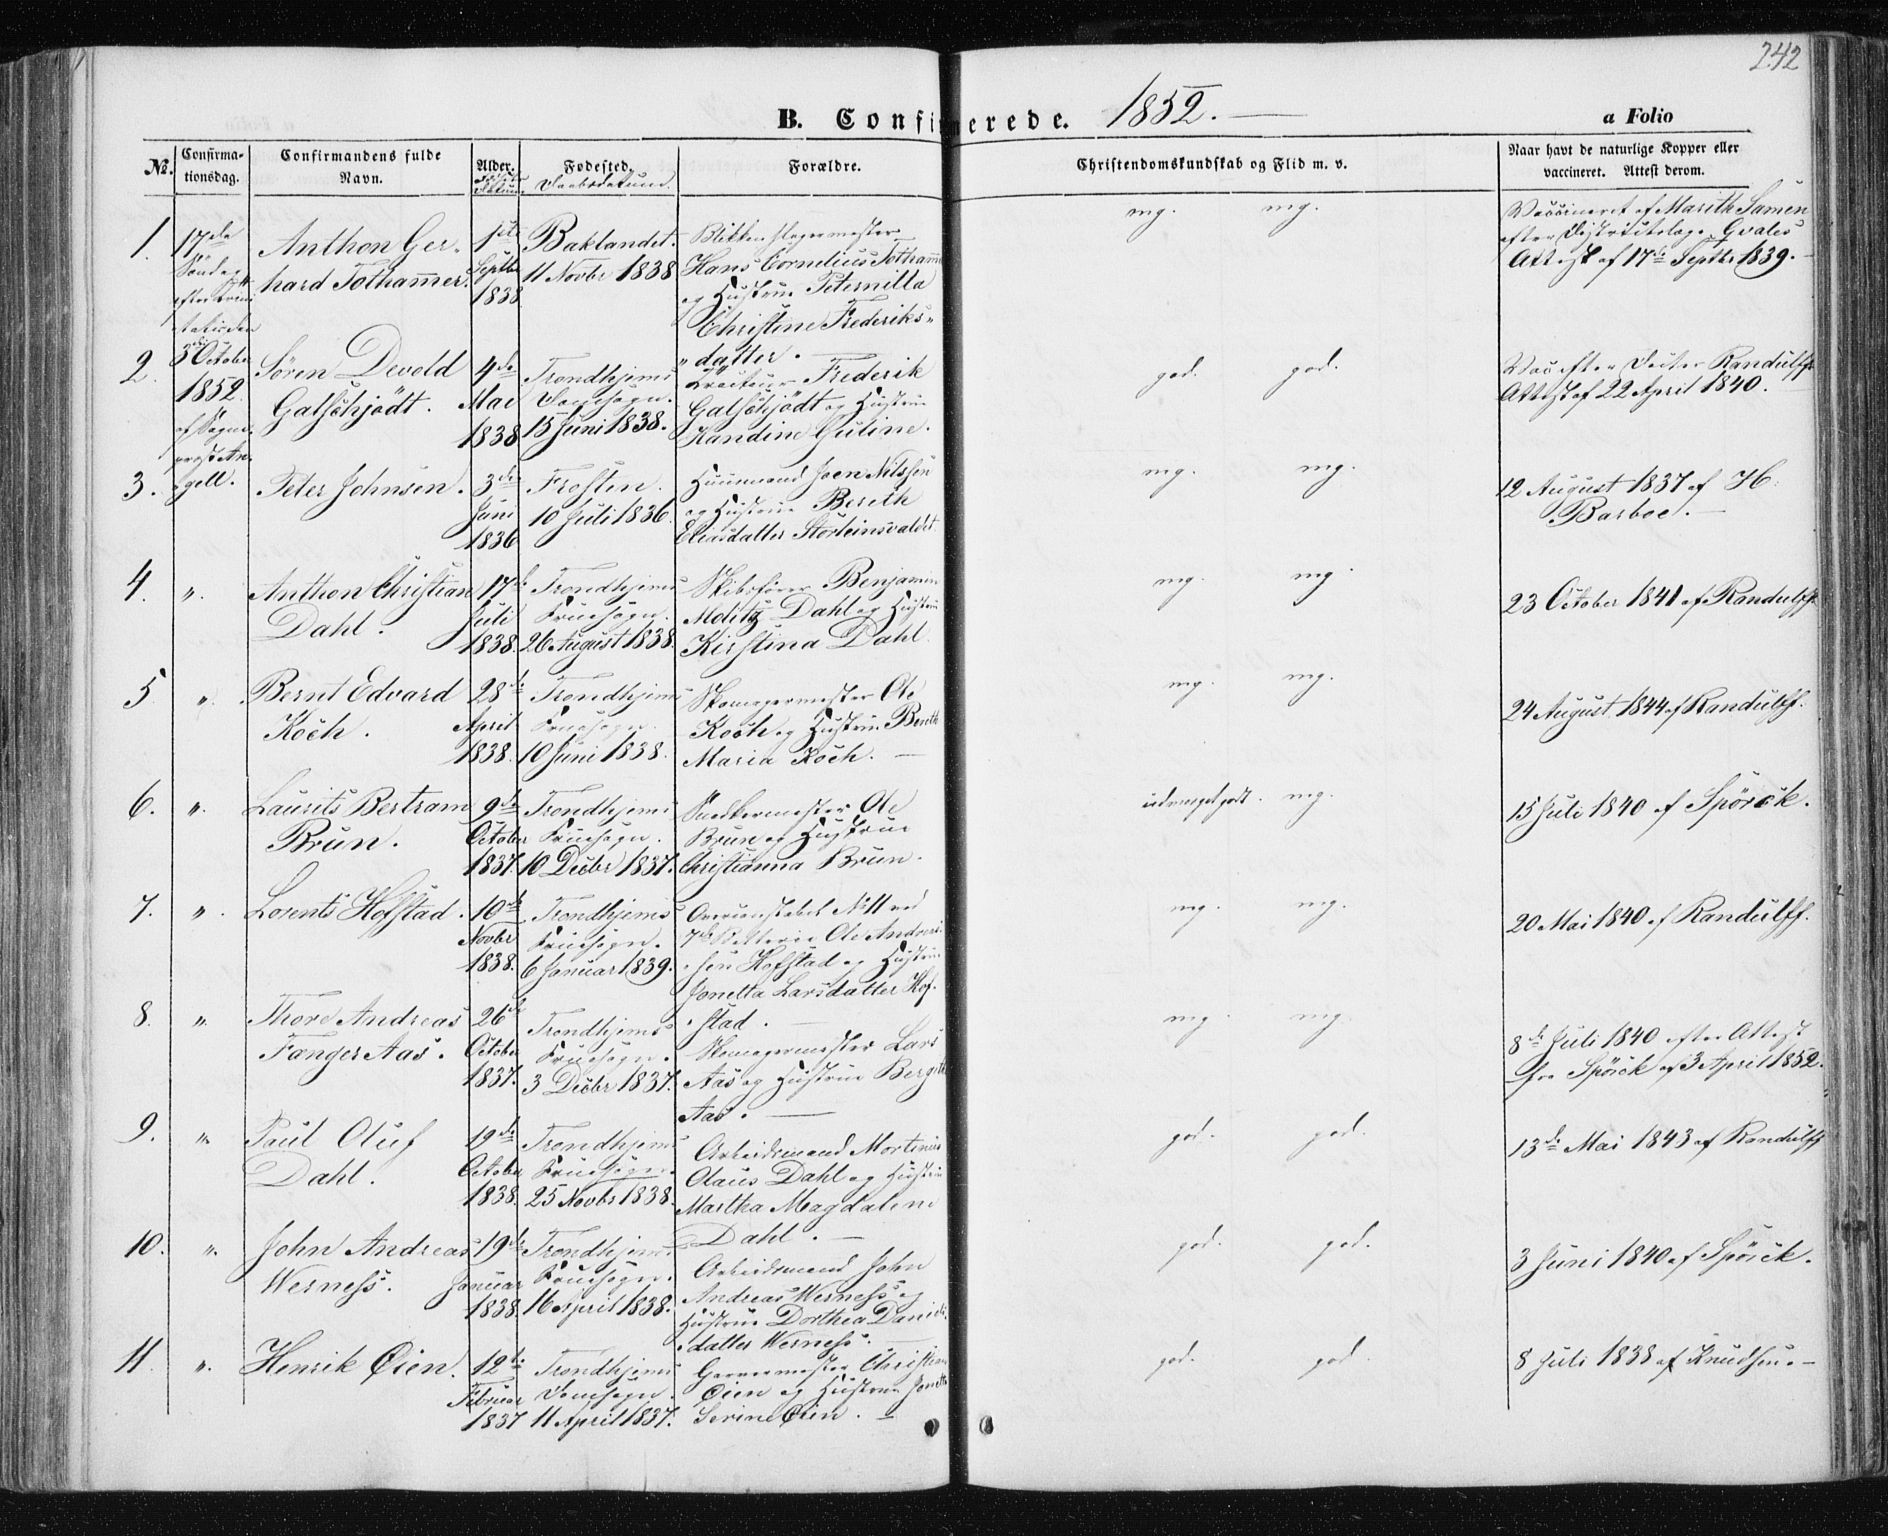 242
B. Confirmerede. 1852.
a Folio
No.
Confirma-
tionsdag.
Confirmandens fulde
Navn.
Alder.
Fødested.
Daabsdatum.
Forældre.
Christendomskundskab og Flid m. v.
Naar havt de naturlige Kopper eller
vaccineret. Attest derom.
1.
17de
Søndag
efter Trini
tatis den
3die October
1852.
af Sogne-
prest An-
gell.
Anthon Ger-
hard Tothammer.
1ste
Septbr
1838
Baklandet.
11 Novbr 1838
Blikkenslagermester
Hans Cornelius Tothammer
og Hustrue Peternilla
Christine Frederiks-
datter.
mg. mg.
Vaccineret af Marith Samen
efter Districtslæge Qvales
Attest af 17de Septbr 1839.
2.
Søren Devold
Galschjödt.
4de
Mai
1838
Trondhjems
Domsogn.
15 Juni 1838.
Frederik
Galschjödt og Hustrue
Kandine Guline.
god. god.
Vacc efter Doctor Randulffs
Attest af 22 April 1840.
3.
Peter Johnsen.
3die
Juni
1836
Frosten.
10 Juli 1836.
Huusmand Joen Nilssen
og Hustrue Bereth
Eliasdatter Storleinsvaldet
mg. mg.
12 August 1837 af H.
Barboe.
4. "
Anthon Christian
Dahl.
17de
Juli
1838.
Trondhjems
Fruesogn.
26 August 1838.
Skibsfører Benjamin
Moltz Dahl og Hustrue
Kirstina Dahl.
mg. mg.
23 October 1841 af Randulff.
5 "
Bernt Edvard
Koch.
28de
April
1838.
Trondhjems
Fruesogn.
10 Juni 1838.
Skomagermester Ole
Koch og Hustrue Bereth
Maria Koch.
mg. mg.
24 August 1844 af Randulff.
6. "
Laurits Bertram
Brun.
9de
October
1837.
Trondhjems
Fruesogn.
10 Decbr 1837.
Snedkermester Ole
Brun og Hustrue
Christianna Brun.
udmærket godt. mg.
15 Juli 1840 af Spörck.
7. "
Lorents Hofstad.
10de
Novbr
1838.
Trondhjems
Fruesogn.
6 Januar 1839.
Overconstabel No 11 ved
7de Batterie Ole Andreas-
sen Hofstad og Hustrue
Jonetta Larsdatter Hof-
stad.
mg. mg.
20 Mai 1840 af Randulff.
8. "
Thore Andreas
Fanger Aas.
26de
October
1837.
Trondhjems
Fruesogn.
3 Decbr 1837.
Skomagermester Lars
Aas og Hustrue Bergith
Aas.
mg. mg.
8de Juli 1840 efter Attest
fra Spörck af 3 April 1852.
9. "
Paul Oluf
Dahl.
19de
October
1838
Trondhjems
Fruesogn.
25 Novbr 1838.
Arbeidsmand Mortinus
Olaus Dahl og Hustrue
Martha Magdalene
Dahl.
god. god.
13de Mai 1843 af Randulff
10. "
John Andreas
Werness.
19de
Januar
1838
Trondhjems
Fruesogn.
16 April 1838.
Arbeidsmand John
Andreas Werness og
Hustrue Dorthea Daniels-
datter Werness.
god. god.
3 Juni 1840 af Spörck.
11. "
Henrik Øien.
12te
Februar
1837
Trondhjems
Domsogn.
11 April 1837.
Garvermester Christian
Øien og Hustrue Jonetta
Serine Øien.
god. god.
8 Juli 1838 af Knudsen.